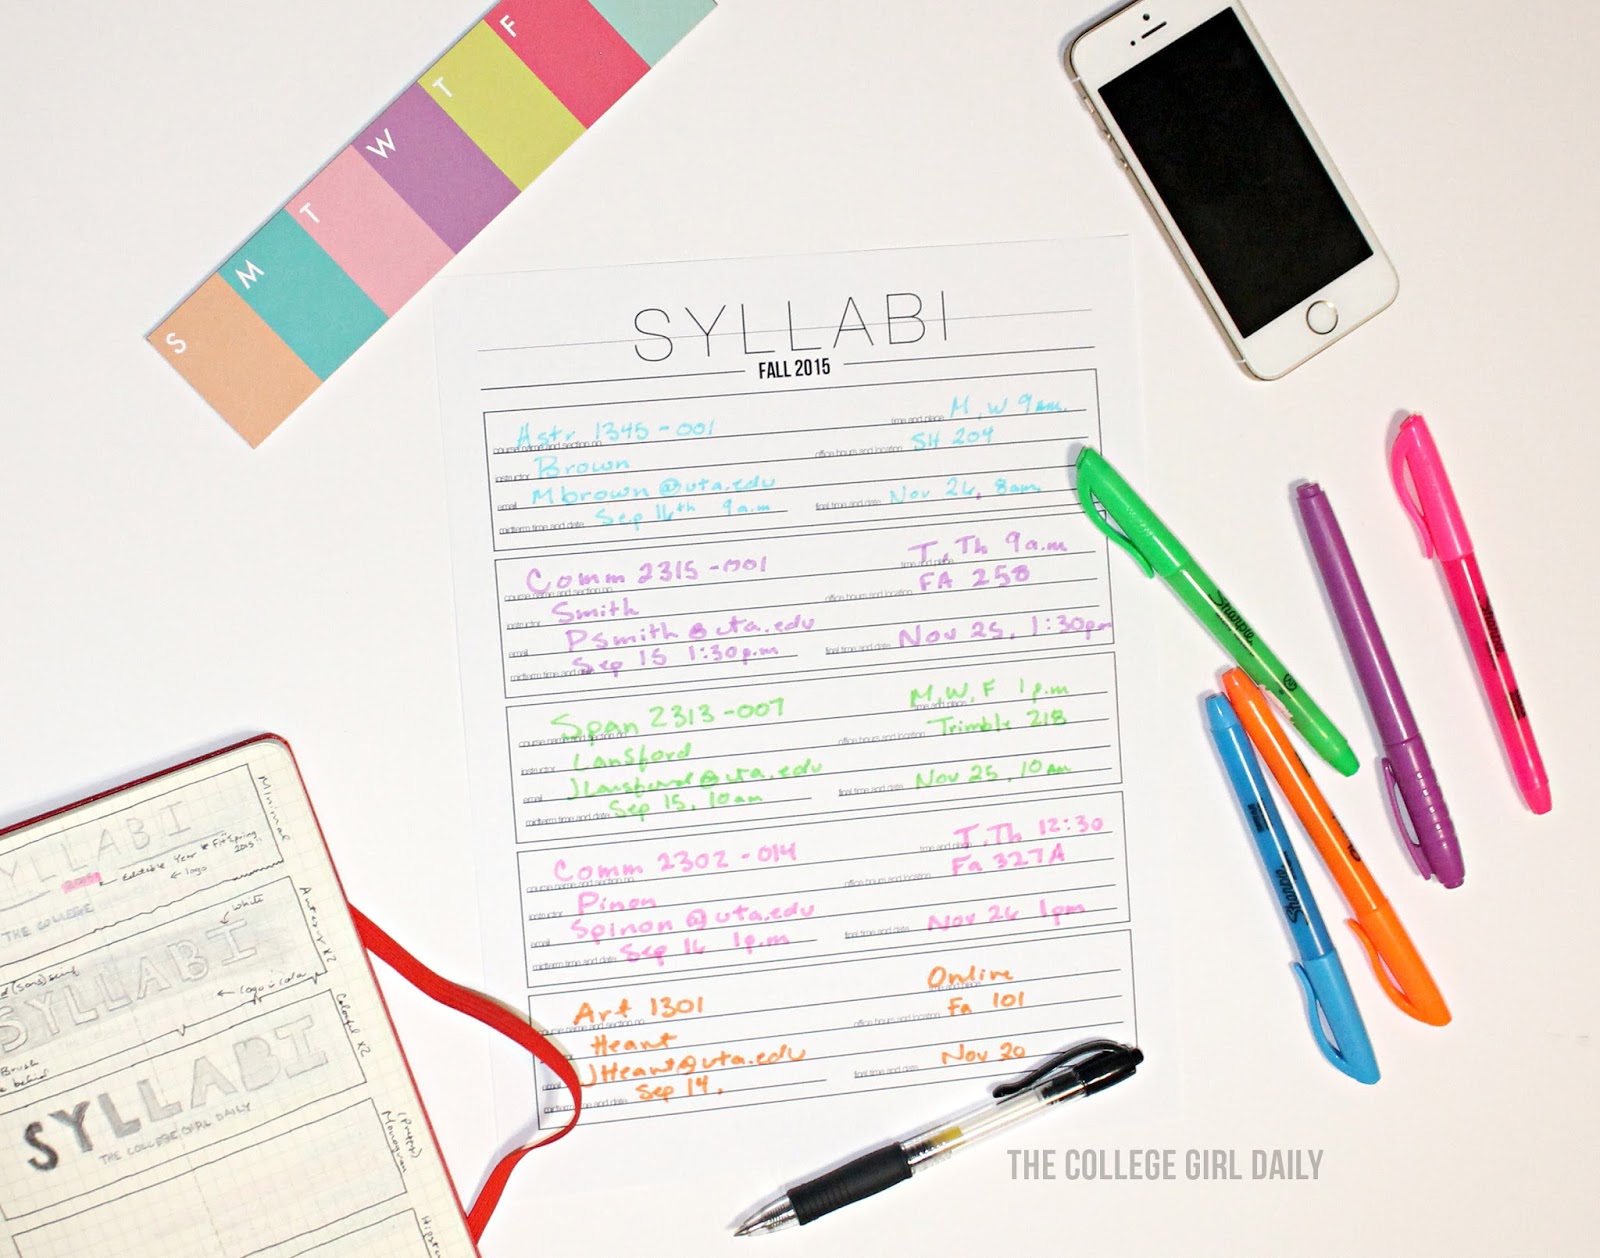 S
M
T
W
T
F
SYLLABI
FALL 2015
Astr 1345-001
time and place M, W 9am.
course name and section no.
instructor Brown
office hours and location SH 204
email Mbrown@uta.edu
midterm time and date Sep 16th 9a.m
final time and date Nov 26, 8am.
Comm 2315-001
time and place T, Th 9a.m
course name and section no.
instructor Smith
office hours and location FA 258
email Psmith@uta.edu
midterm time and date Sep 15 1:30p.m
final time and date Nov 25, 1:30pm
Span 2313-007
time and place M, W, F 1p.m
course name and section no.
instructor Lansford
office hours and location Trimble 218
email JLansford@uta.edu
midterm time and date Sep 15, 10am
final time and date Nov 25, 10am
Comm 2302-014
time and place T, Th 12:30
course name and section no.
instructor Pinon
office hours and location Fa 327A
email Spinon@uta.edu
midterm time and date Sep 16 1p.m
final time and date Nov 26 1pm
Art 1301
Online
course name and section no.
Heant
office hours and location Fa 101
email JHeant@uta.edu
midterm time and date Sep 14.
final time and date Nov 20
Sharpie
Sharpie
Sharpie
Minimal
SYLLABI
Fit Spring
2015
Editable Year
logo
THE COLLEGE
white
x2
SYLLABI
logo
Brush
behind
Colorful x2
SYLLABI
THE COLLEGE GIRL DAILY
Monogram
THE COLLEGE GIRL DAILY